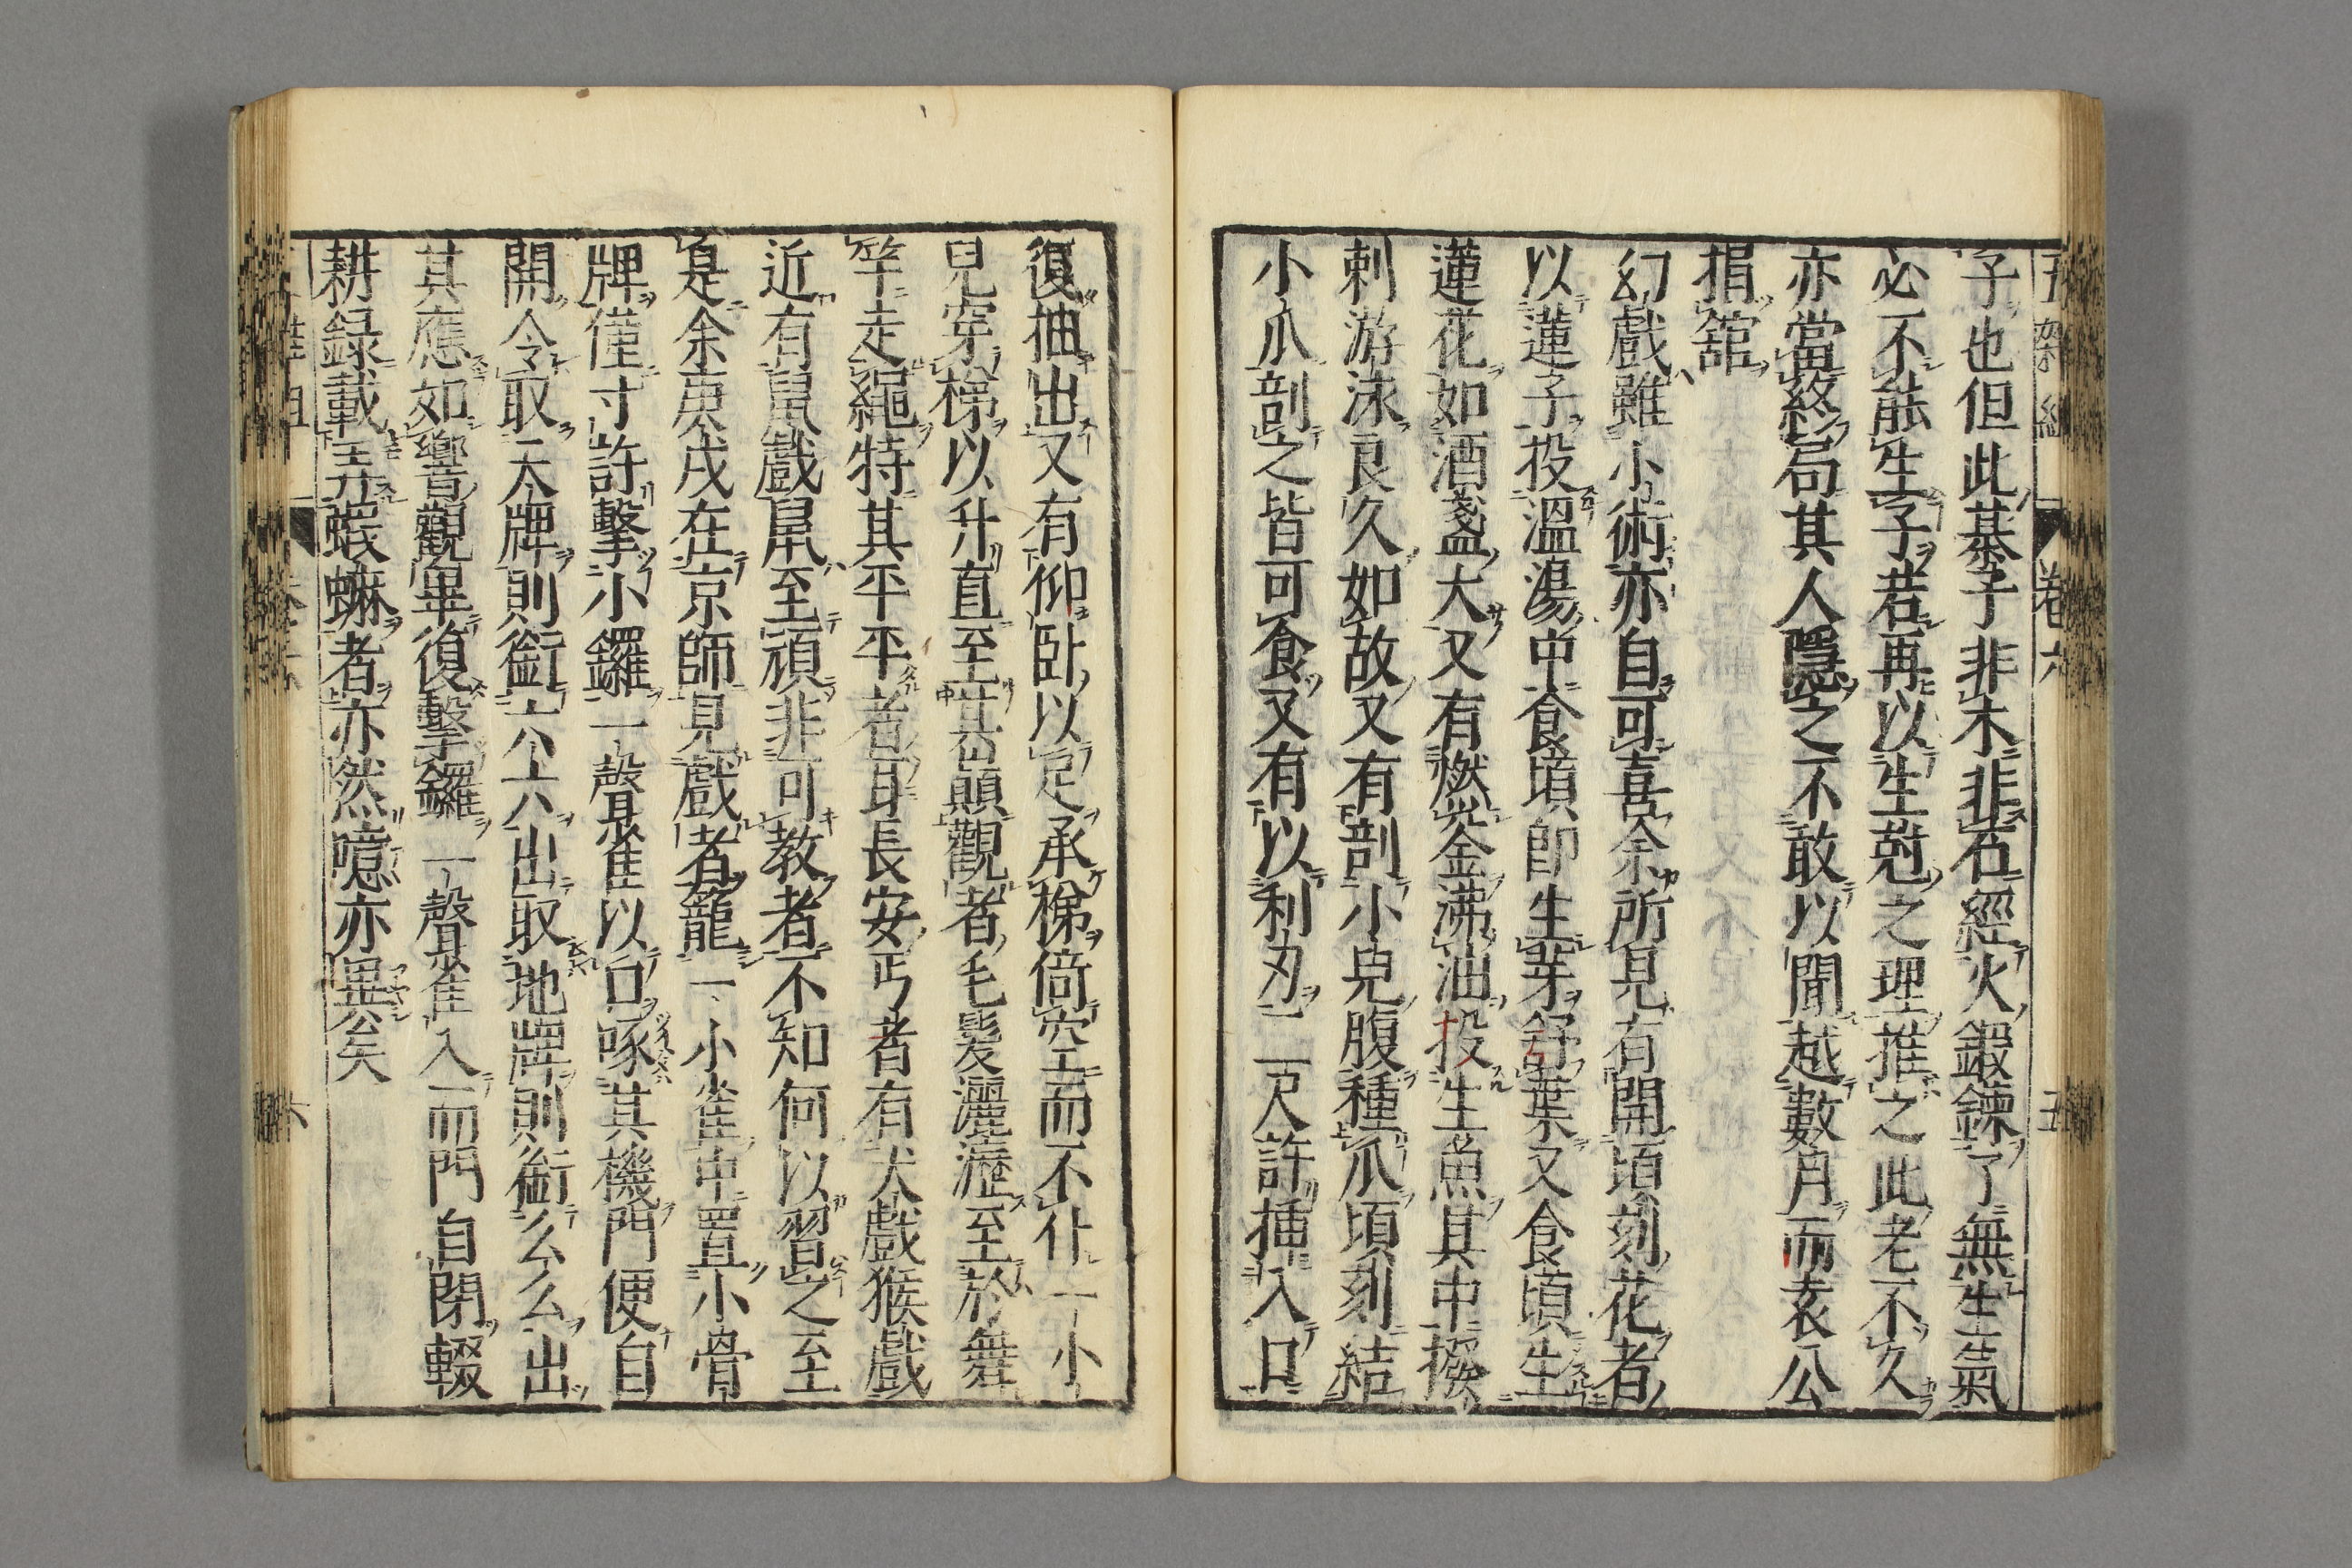 子也但此棊子非木非石經火鍛鍊了無生氣
必不能生子若再以生尅之理推之此老不久
亦當終局其人隱之不敢以聞越數月而袁公
捐舘
幻戲雖小術亦自可喜余所見有開頃刻花者
以蓮子投溫湯中食頃卽生芽舒葉又食頃生
蓮花如酒盞大又有燃釡沸油投生魚其中撥
剌游泳良久如故又有剖小兒腹種瓜頃刻結
小瓜剖之皆可食又有以利刃二尺許挿入口
復抽出又有仰臥以足承梯倚空而不仆一小
兒穿梯以升直至其顚觀者毛髮灑瀝至於舞
竿走繩特其平平者耳長安丐者有犬戲猴戲
近有鼠戲鼠至頑非可教者不知何以習之至
是余庚戌在京師見戲者籠一小雀中置小骨
牌僅寸許擊小鑼一聲雀以口啄其機門便自
開令取天牌則銜六六出取地牌則銜么么出
其應如響觀畢復擊鑼一聲雀入而門自閉輟
耕録載至弄蝦蟆者亦然噫亦異矣
卷六
五
六